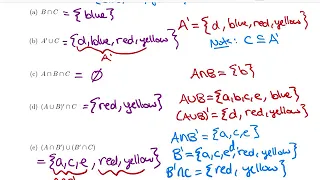 (a) B ∩ C = {blue}
A' = {d, blue, red, yellow}
(b) A' ∪ C = {d, blue, red, yellow}
Note: C ⊆ A'
(c) A ∩ B ∩ C = ∅
A∩B = {b}
(d) (A ∪ B)' ∩ C = {red, yellow}
A∪B = {a,b,c,e, blue}
(A∪B)' = {d, red, yellow}
(e) (A ∩ B') ∪ (B' ∩ C)
A∩B' = {a,c,e}
= {a,c,e, red, yellow}
B' = {a,c,d,e, red, yellow}
B'∩C = {red, yellow}